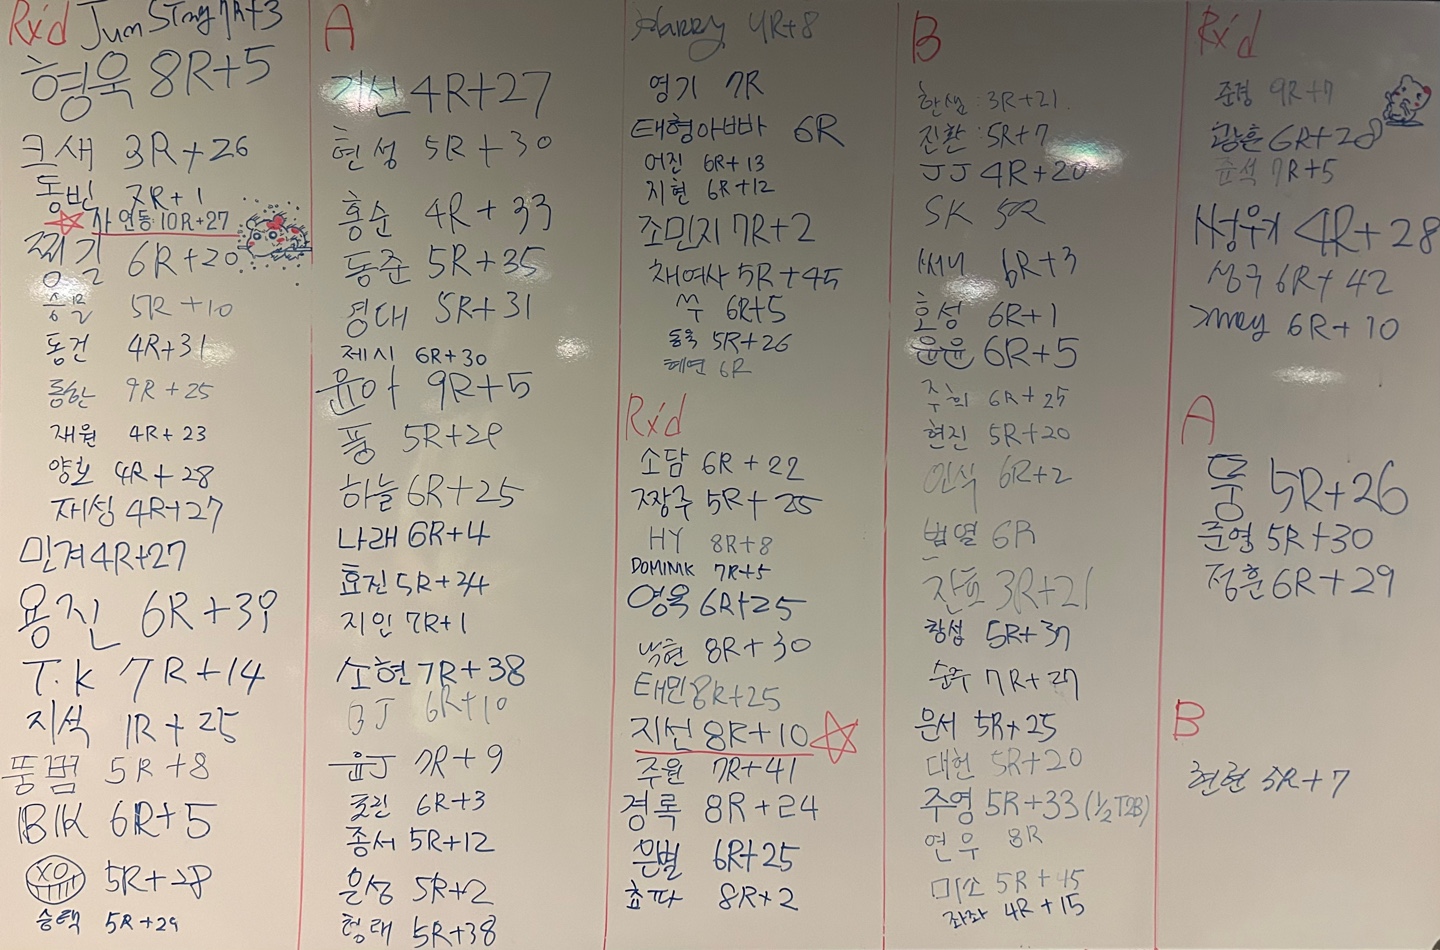 Rx'd Jun STng 7R+3
형욱 8R+5
크새 3R+26
동빈 7R+1
사 연동 10R+27
찡길 6R+20
5R+10
동건 4R+31
룡한 9R+25
재원 4R+23
양호 4R+28
재성 4R+27
민겨 4R+27
용진 6R+39
T.K 7R+14
지석 1R+25
뚱범 5R+8
BIK 6R+5
XO 5R+28
승택 5R+29
A
기선 4R+27
현성 5R+30
홍순 4R+33
동준 5R+35
영대 5R+31
제시 6R+30
윤아 9R+5
풍 5R+29
하늘 6R+25
나래 6R+4
효진 5R+34
지인 7R+1
소현 7R+38
BJ 6R+10
윤J 7R+9
6R+3
종서 5R+12
은성 5R+2
형태 5R+38
Harry 4R+8
영기 7R
태형아빠 6R
어진 6R+13
지현 6R+12
조민지 7R+2
채여사 5R+45
쑤 6R+5
동욱 5R+26
혜연 6R
Rx'd
소담 6R+22
짱주 5R+25
HY 8R+8
DOMINIK 7R+5
영욱 6R+25
낙현 8R+30
태민 8R+25
지선 8R+10
주원 7R+41
경록 8R+24
은별 6R+25
쵸파 8R+2
B
한샘 : 3R+21
진환 : 5R+7
JJ 4R+20
SK 5R
써니 6R+3
호성 6R+1
윤윤 6R+5
주희 6R+25
현진 5R+20
인식 6R+2
범열 6R
잔프 3R+21
창섭 5R+37
순주 7R+27
문서 5R+25
대헌 5R+20
주영 5R+33 (1/2 T2B)
연우 8R
미소 5R+45
좌좌 4R+15
Rx'd
준경 9R+7
광훈 6R+28
윤석 7R+5
성우거 4R+28
상구 6R+42
6R+10
A
뭉 5R+26
준열 5R+30
정훈 6R+29
B
현현 5R+7